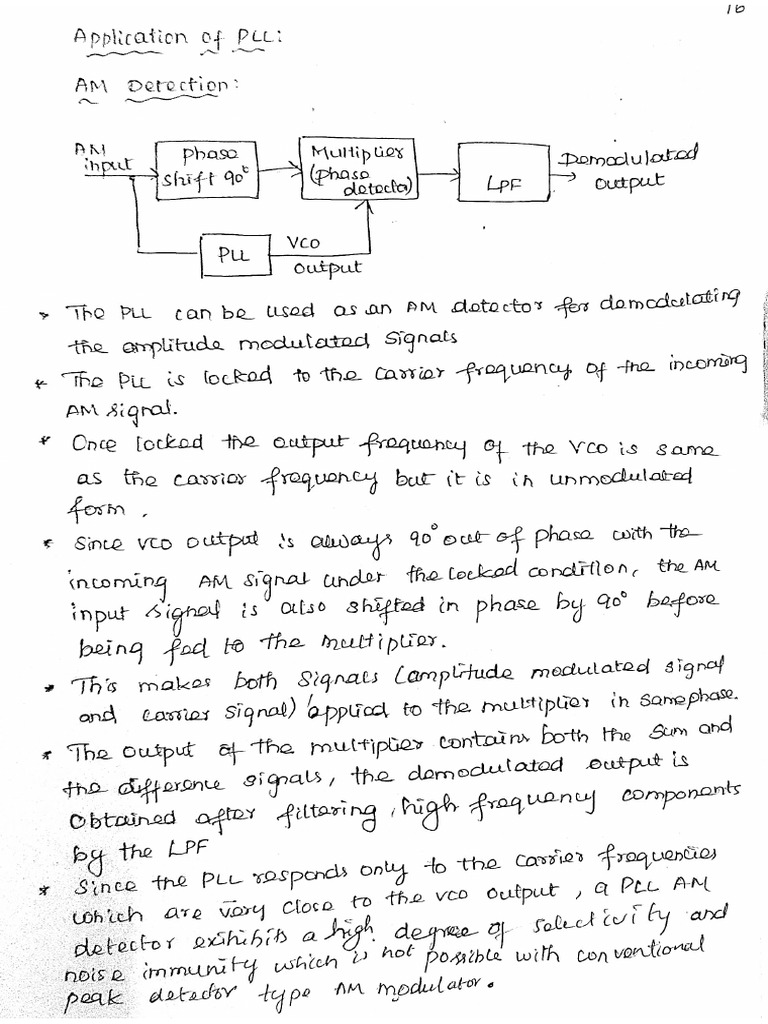 16
Application of PLL:
AM Detection:
AM
input
Phase
shift 90°
Multiplier
(phase
detector)
LPF
Demodulated
output
PLL
VCO
output
The PLL can be used as an AM detector for demodulating
the amplitude modulated signals
* The PLL is locked to the carrier frequency of the incoming
AM signal.
* Once locked the output frequency of the VCO is same
as the carrier frequency but it is in unmodulated
form.
* Since VCO output is always 90° out of phase with the
incoming AM signal under the locked condition, the AM
input signal is also shifted in phase by 90° before
being fed to the multiplier.
* This makes both signals (amplitude modulated signal
and carrier signal) applied to the multiplier in same phase.
* The output of the multiplier contains both the sum and
the difference signals, the demodulated output is
obtained after filtering, high frequency components
by the LPF
* Since the PLL responds only to the carrier frequencies
which are very close to the VCO output, a PLL AM
detector exhibits a high degree of selectivity and
noise immunity which is not possible with conventional
peak detector type AM modulator.